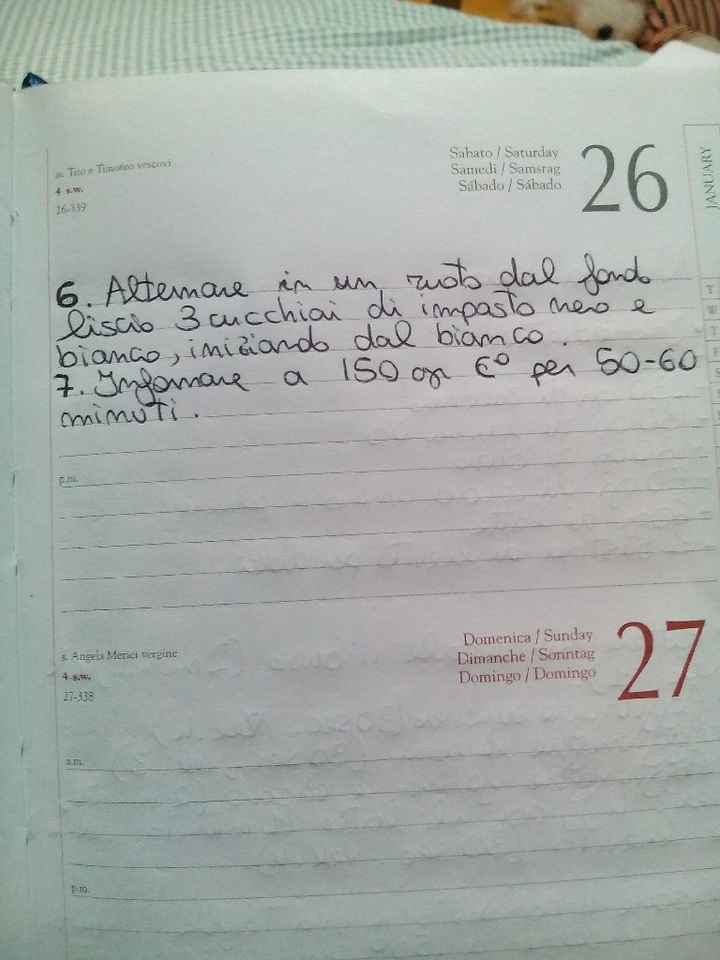 ss. Tito e Timoteo vescovi
4 s.w.
26-339
Sabato / Saturday
Samedi / Samstag
Sábado / Sábado
26
JANUARY
6. Alternare in un ruoto dal fondo
liscio 3 cucchiai di impasto nero e
bianco, iniziando dal bianco.
7. Infornare a 150 gr C° per 50-60
minuti.
p.m.
s. Angela Merici vergine
4 s.w.
27-338
Domenica / Sunday
Dimanche / Sonntag
Domingo / Domingo
27
a.m.
p.m.